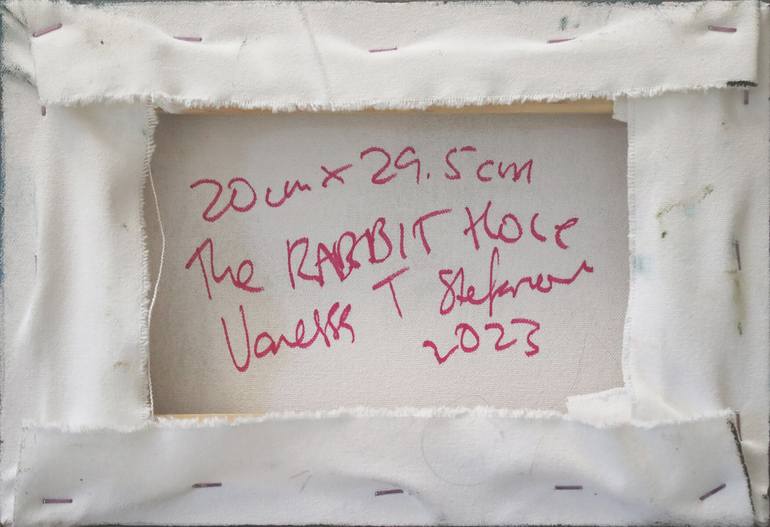 20cm x 29.5cm
The RABBIT HOLE
Vanessa T Stefanova
2023